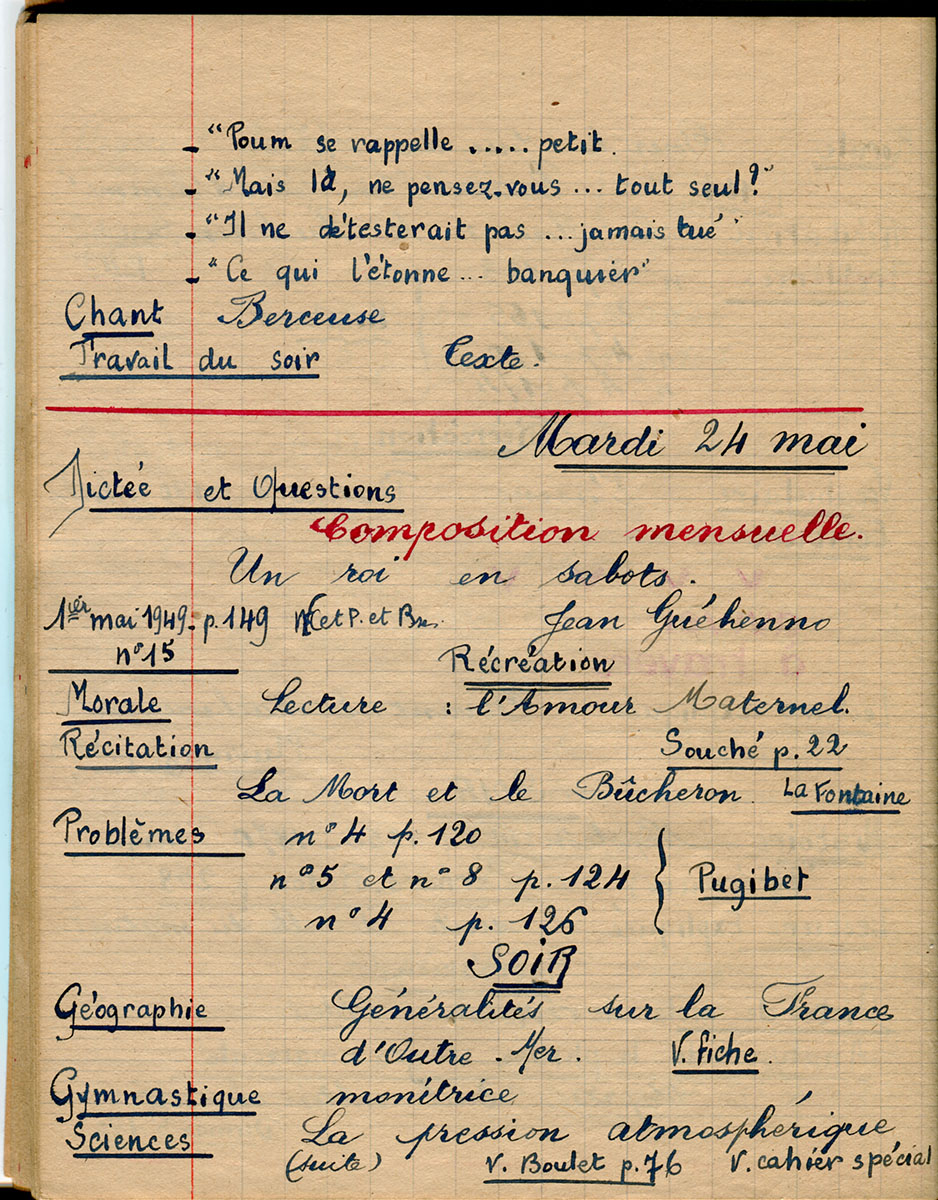 - "Poum se rappelle ..... petit.
- "Mais là, ne pensez-vous ... tout seul?"
- "Il ne détesterait pas ... jamais tué"
- "Ce qui l'étonne ... banquier"
Chant Berceuse
Travail du soir texte.
Mardi 24 mai
Dictée et Questions
Composition mensuelle.
Un roi en sabots.
1er mai 1949 - p. 149 et P. et Jean Guéhenno
n° 15 Récréation
Morale Lecture : l'Amour Maternel.
Récitation Souché p. 22
La Mort et le Bûcheron. La Fontaine
Problèmes n° 4 p. 120
n° 5 et n° 8 p. 124 Pugibet
n° 4 p. 126
SOIR
Géographie Généralités sur la France
d'Outre-Mer. V. fiche.
Gymnastique monitrice
Sciences La pression atmosphérique
(suite) V. Boulet p. 76 V. cahier spécial